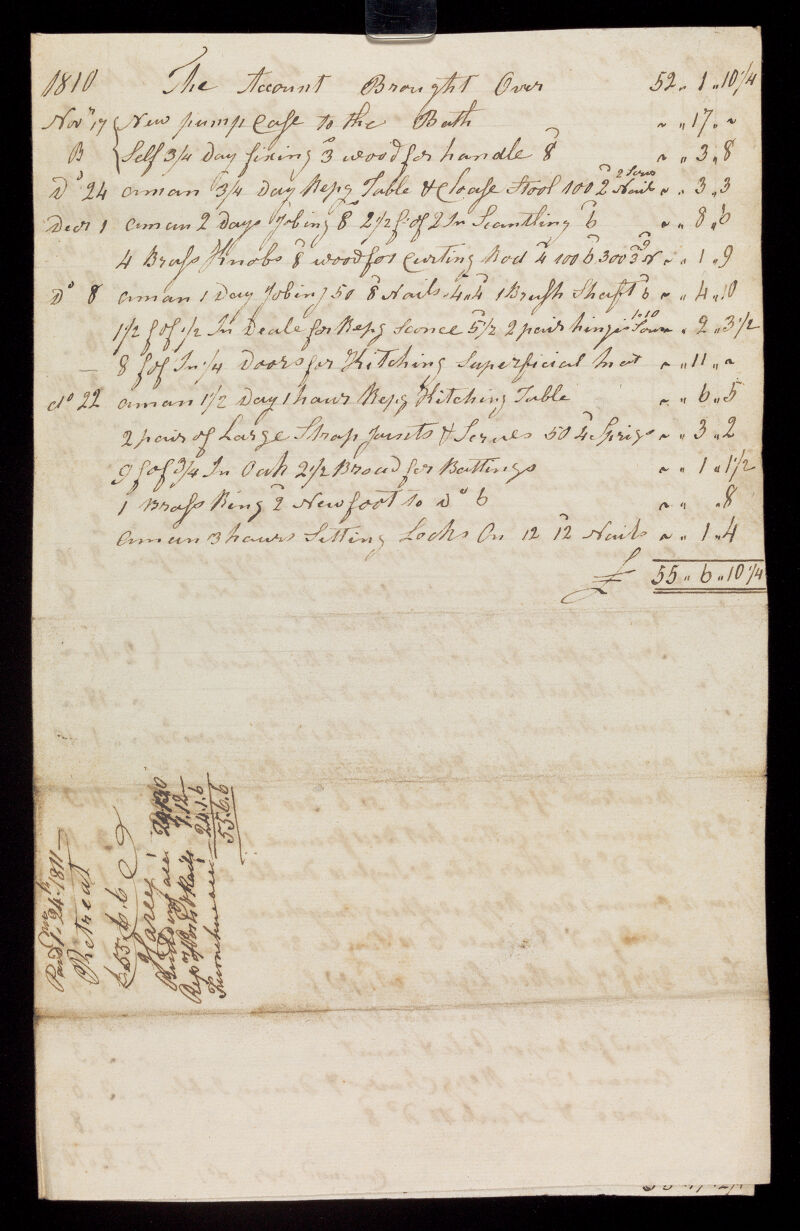 1810 The Account Brought Over 52 " 1 " 10 1/4
Novr 17 New pump Case to the Bath " " 17 " "
B Self 3/4 Day fixing 3 wood for handle 8 " " 3 " 8
Do 24 aman 3/4 Day Repg Table & Close Stool 100 2 Nails 2 Scrus " " 3 " 3
Decr 1 aman 2 Days Jobing 8 2 1/2 f of 2 In Scantling 6 " " 8 " 6
4 Brass Knobs 8 wood for Curting Rod 4 100 6 300 3 N 9 " " 1 " 9
Do 8 aman 1 Day Jobing 50 8 Nails 4 4 1 Brush Shaft 6 " " 4 " 10
1 1/2 f of 1/2 In Deale for Repg Sconce 5 1/2 2 pair hinges " 2 " 3 1/2
— 8 f of In 1/4 Doors for Kitching Superficial Mest " " 11 " "
do 22 aman 1 1/2 Day 1 hour Repg Kitching Table " " 6 " 5
2 pair of Large Strap Joints & Scrues 50 4 Sprigs " " 3 " 2
9 f of 3/4 In Oak 2 1/2 Broad for Battings " " 1 " 1 1/2
1 Brass Ring 2 New foot to Do 6 " " " 8
aman 3 hours Setting Locks On 12 12 Nails " " 1 " 4
£ 55 " 6 " 10 1/4
Paid Jany 24th 1811
Retreat
£55.6.6
7.12
Repg of Posts & Rails
Furniture 24.1.6
55.6.6